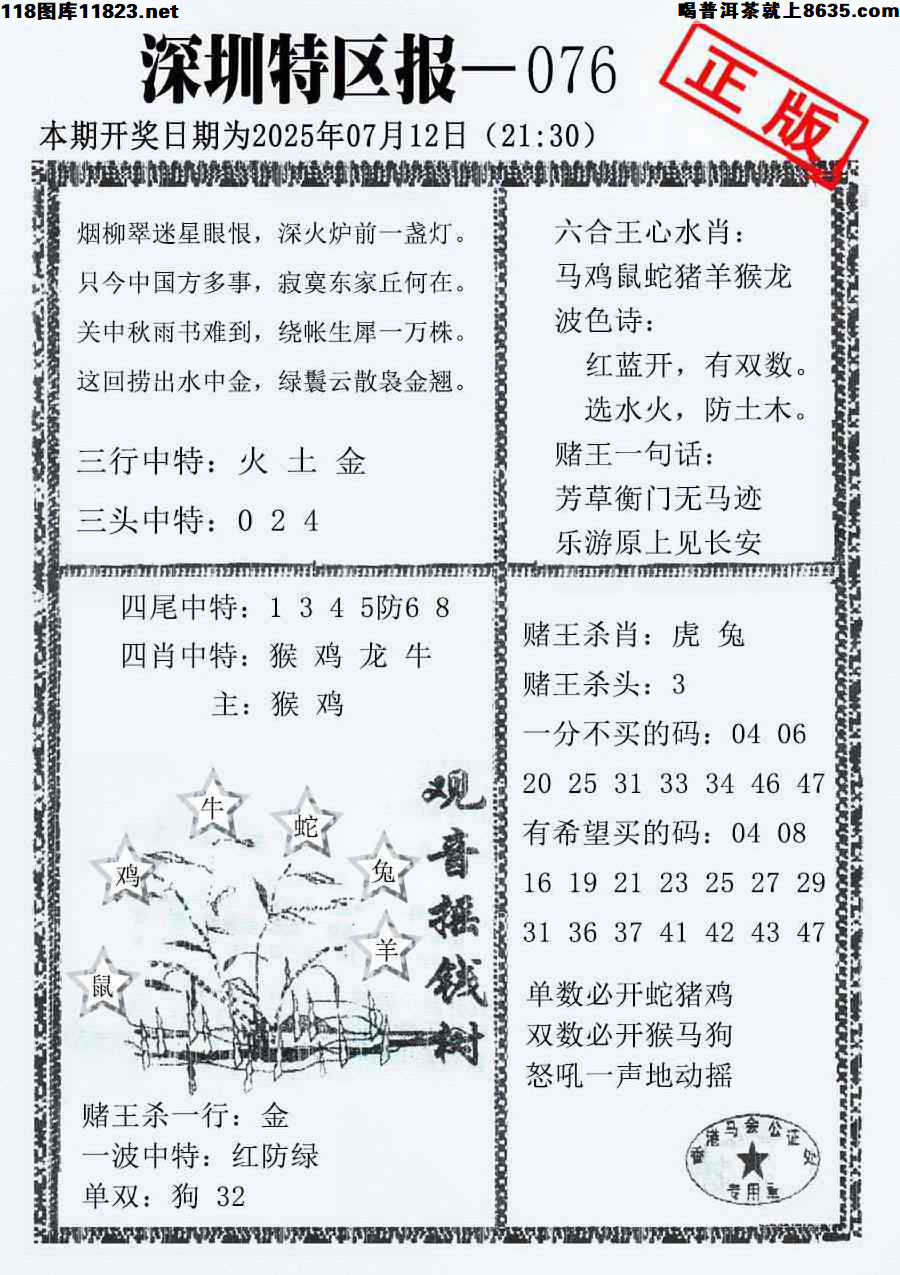 118图库11823.net
喝普洱茶就上8635.com
深圳特区报—076
正版
本期开奖日期为2025年07月12日（21:30）
烟柳翠迷星眼恨，深火炉前一盏灯。
只今中国方多事，寂寞东家丘何在。
关中秋雨书难到，绕帐生犀一万株。
这回捞出水中金，绿鬟云散袅金翘。
三行中特：火 土 金
三头中特：0 2 4
六合王心水肖：
马鸡鼠蛇猪羊猴龙
波色诗：
红蓝开，有双数。
选水火，防土木。
赌王一句话：
芳草衡门无马迹
乐游原上见长安
四尾中特：1 3 4 5防6 8
四肖中特：猴 鸡 龙 牛
主：猴 鸡
牛
蛇
鸡
兔
羊
鼠
观音摇钱树
赌王杀一行：金
一波中特：红防绿
单双：狗 32
赌王杀肖：虎 兔
赌王杀头：3
一分不买的码：04 06
20 25 31 33 34 46 47
有希望买的码：04 08
16 19 21 23 25 27 29
31 36 37 41 42 43 47
单数必开蛇猪鸡
双数必开猴马狗
怒吼一声地动摇
港马会公证
专用